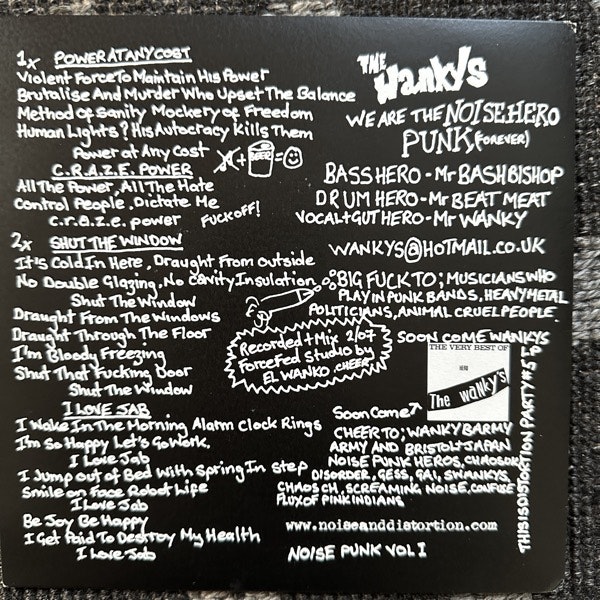 1x POWER AT ANY COST
Violent Force To Maintain His Power
Brutalise And Murder Who Upset The Balance
Method of Sanity Mockery of Freedom
Human Lights? His Autocracy Kills Them
Power at Any Cost
BEER
C.R.A.Z.E. POWER
All The Power, All The Hate
Control People, Dictate Me
C.r.a.z.e. power
FUCK OFF!
2x SHUT THE WINDOW
It's Cold In Here, Draught From Outside
No Double Glazing, No Cavity Insulation
Shut The Window
Draught From The Windows
Draught Through The Floor
I'm Bloody Freezing
Shut That Fucking Door
Shut The Window
I LOVE JAB
I Wake In The Morning Alarm Clock Rings
I'm So Happy Let's Go Work.
I Love Jab
I Jump out of Bed With Spring In Step
Smile on Face Robot Life
I Love Jab
Be Joy Be Happy
I Get Paid To Destroy My Health
I Love Jab
Recorded + Mix 2/07
ForceFed Studio by
EL WANKO CHEER
THE Wankys
WE ARE THE NOISE HERO
PUNK (FOREVER)
BASS HERO - Mr BASH BISHOP
DRUM HERO - Mr BEAT MEAT
VOCAL + GUT HERO - Mr WANKY
WANKYS@HOTMAIL.CO.UK
BIG FUCK TO; MUSICIANS WHO
PLAY IN PUNK BANDS, HEAVY METAL
POLITICIANS, ANIMAL CRUEL PEOPLE.
SOON COME WANKYS
THE VERY BEST OF
HERO
The wanky's
Soon Come
CHEER TO; WANKY BARMY
ARMY AND BRISTOL + JAPAN
NOISE PUNK HEROS, CHAOS UK
DISORDER, GESS, GAI, SWANKYS
CHAOS CH, SCREAMING NOISE, CONFUSE
FLUX OF PINK INDIANS
www.noiseanddistortion.com
NOISE PUNK VOL I
THIS IS DISTORTION PARTY #5